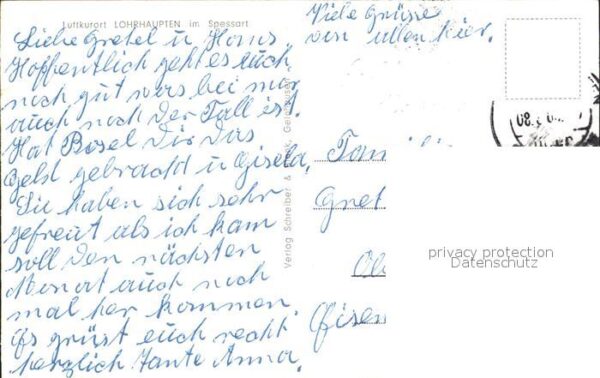 Luftkurort LOHRHAUPTEN im Spessart
Liebe Gretel u Hans
Hoffentlich geht es euch
noch gut was bei mir
auch noch der Fall ist.
Hat Rosel Dir das
Geld gebracht u Gisela,
Sie haben sich sehr
gefreut als ich kam
soll den nächsten
Monat auch noch
mal her kommen.
Es grüst euch recht
herzlich Tante Anna.
Viele Grüsse
von allen hier.
Verlag Schreiber &
Fam
Gret
Eisen
privacy protection
Datenschutz